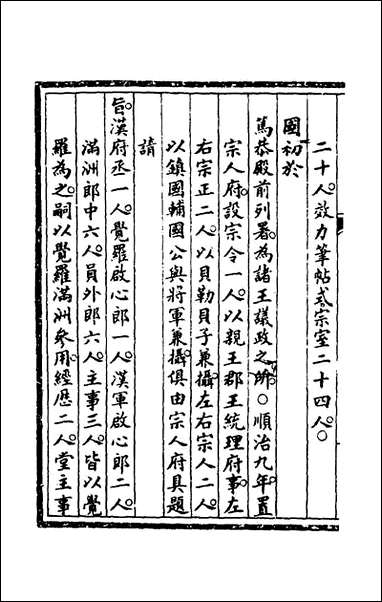 二十人效力筆帖式宗室二十四人○
國初於
篤恭殿前列署爲諸王議政之所○順治九年置
宗人府設宗令一人以親王郡王統理府事左
右宗正二人以貝勒貝子兼攝左右宗人二人
以鎮國輔國公與將軍兼攝俱由宗人府具題
請
旨漢府丞一人覺羅啟心郎一人漢軍啟心郎二人
滿洲郎中六人員外郎六人主事三人皆以覺
羅為之嗣以覺羅滿洲參用經歷二人堂主事